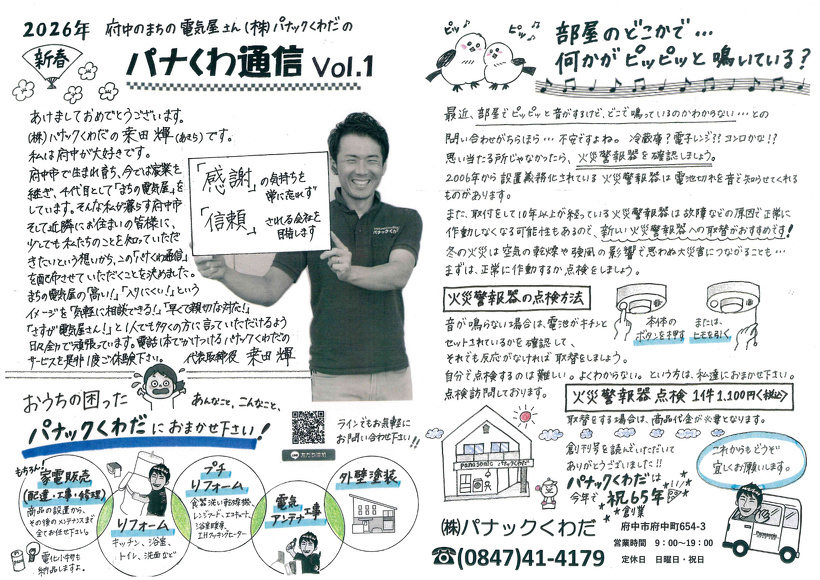 2026年 府中のまちの電気屋さん(株)パナックくわだの
新春
パナくわ通信 Vol.1
あけましておめでとうございます。
(株)パナックくわだの桒田 輝(あきら)です。
私は府中が大好きです。
府中市で生まれ育ち、今では家業を
継ぎ、千代目として「まちの電気屋」を
しています。そんな私が暮らす府中市
そして近隣にお住まいの皆様に、
少しでも私たちのことを知っていただ
きたいという想いから、この「くわ通信」
を配布させていただくことを決めました。
まちの電気屋の「高い!」「入りにくい!」という
イメージを「気軽に相談できる!」「早くて親切な対応!」
「さすが電気屋さん!」と1人でも多くの方に言っていただけるよう
日々全力で頑張っています。電話1本でかけつけるパナックくわだの
サービスを是非1度ご体験下さい。
代表取締役 桒田 輝
「感謝」の気持ちを
常に忘れず
「信頼」される会社を
目指します
パナックくわだ
おうちの困った
あんなこと、こんなこと、
パナックくわだにおまかせ下さい!
友だち追加
ラインでもお気軽に
お問い合わせ下さい!!
もちろん!
家電販売
(配達・工事・修理)
商品の設置から、
その後のメンテナンスまで
全てお任せ下さい。
電化小物も
納品しますよ。
リフォーム
キッチン、浴室、
トイレ、洗面など
プチ
リフォーム
食器洗い乾燥機、
レンジフード、エコキュート、
浴室暖房、
IHクッキングヒーター
電気
アンテナ工事
外壁塗装
ピッ♪
ピッ♪
部屋のどこかで…
何かがピッピッと鳴いている?
最近、部屋でピッピッと音がするけど、どこで鳴っているのかわからない…との
問い合わせがちらほら…不安ですよね。冷蔵庫?電子レンジ??コンロかな!?
思い当たる所じゃなかったら、火災警報器を確認しましょう。
2006年から設置義務化されている火災警報器は電池切れを音で知らせてくれる
ものがあります。
また、取付をして10年以上が経っている火災警報器は故障などの原因で正常に
作動しなくなる可能性もあるので、新しい火災警報器への取替がおすすめです!
冬の火災は空気の乾燥や強風の影響で思わぬ大災害につながることも…
まずは、正常に作動するか点検をしましょう。
火災警報器の点検方法
音が鳴らない場合は、電池がキチンと
セットされているかを確認して、
それでも反応がなければ取替をしましょう。
本体の
ボタンを押す
または、
ヒモを引く
自分で点検するのは難しい。よくわからない。という方は、私達におまかせ下さい。
点検訪問しております。
火災警報器点検 1件1,100円<税込>
取替をする場合は、商品代金が必要となります。
Panasonic パナックくわだ
創刊号を読んでいただいて
ありがとうございました!!
パナックくわだは
今年で、祝65年
創業
これからもどうぞ
宜しくお願いします。
(株)パナックくわだ
府中市府中町654-3
☎(0847)41-4179
営業時間 9:00〜19:00
定休日 日曜日・祝日